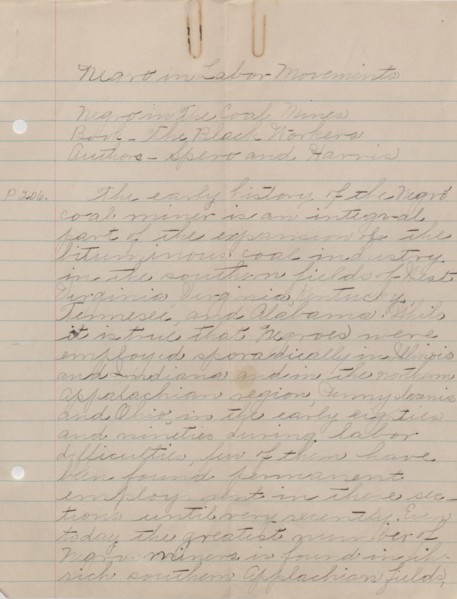 Negro in Labor Movements
Negro in The Coal Mines
Book - The Black Workers
Authors - Spero and Harris
P 206. The early history of the Negro
coal miner is an integral
part of the expansion of the
bituminous coal industry
in the southern fields of West
Virginia Virginia, Kentucky,
Tennesee, and Alabama. While
it is true that Negroes were
employed sporadically in Illinois
and Indiana and in the northern
Appalachian region, Pennsylvania
and Ohio, in the early eighties
and nineties during labor
difficulties, few of them have
been found permanent
employment in these sec-
tions until very recently. Even
today the greatest number of
Negro miners is found in the
rich southern Applachian fields,